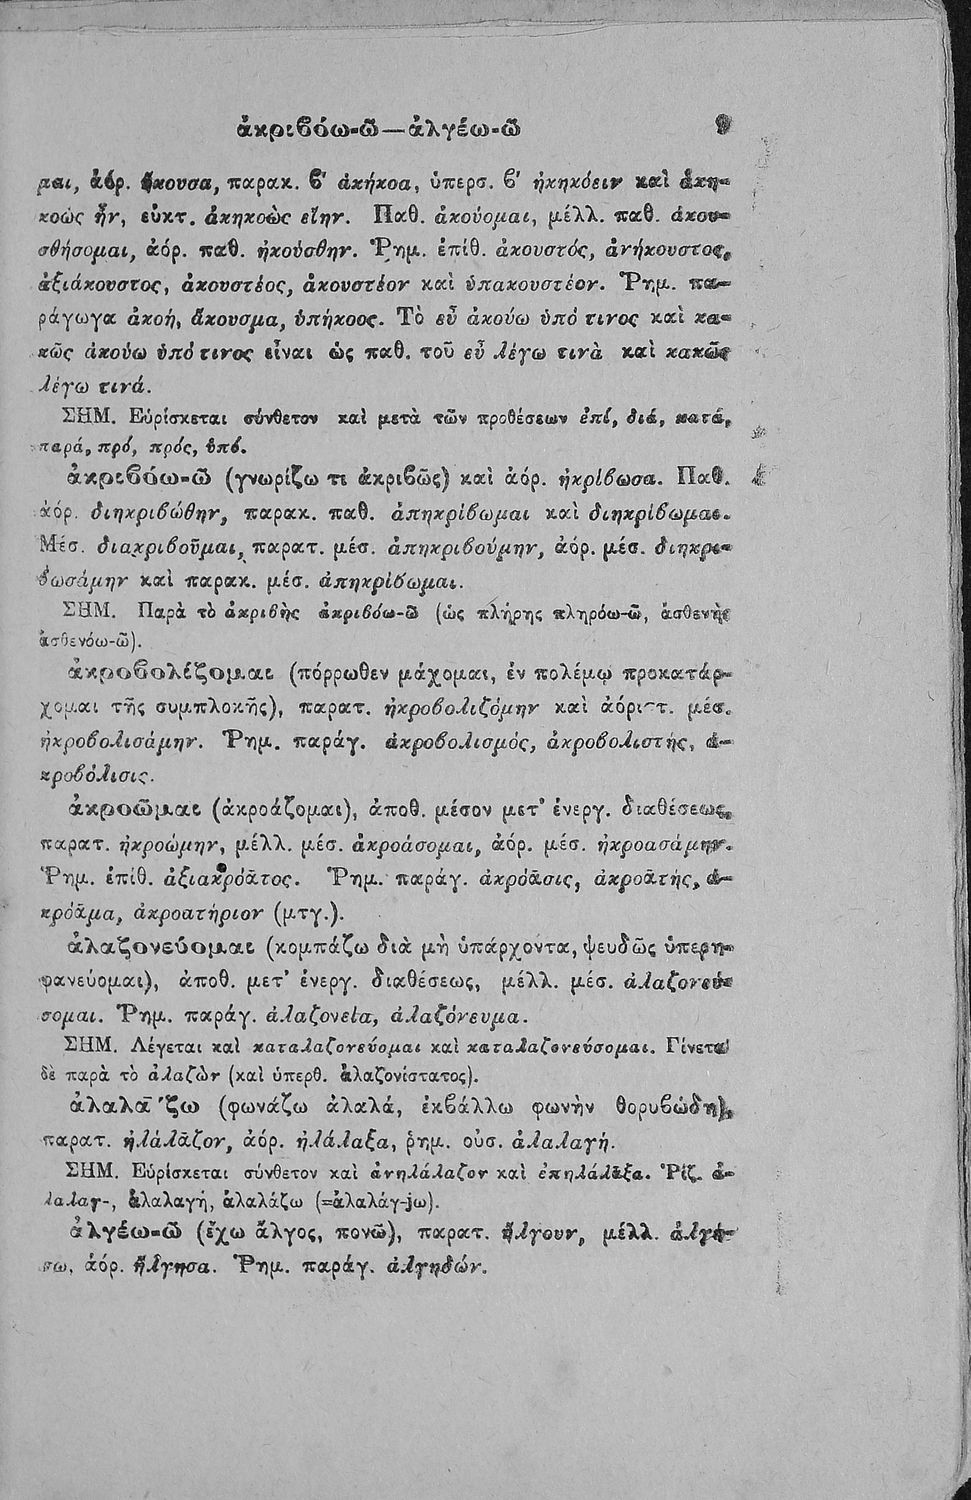 ἀκριβόω-ῶ—ἀλγέω-ῶ 9
μαι, ἀόρ. ἤκουσα, παρακ. β' ἀκήκοα, ὑπερσ. β' ἠκηκόειν καὶ ἀκη-
κοὼς ἦν, εὐκτ. ἀκηκοὼς εἴην. Παθ. ἀκούομαι, μέλλ. παθ. ἀκου-
σθήσομαι, ἀόρ. παθ. ἠκούσθην. Ῥημ. ἐπίθ. ἀκουστός, ἀνήκουστος,
ἀξιάκουστος, ἀκουστέος, ἀκουστέον καὶ ὑπακουστέον. Ῥημ. πα-
ράγωγα ἀκοή, ἄκουσμα, ὑπήκοος. Τὸ εὖ ἀκούω ὑπό τινος καὶ κα-
κῶς ἀκούω ὑπό τινος εἶναι ὡς παθ. τοῦ εὖ λέγω τινὰ καὶ κακῶς
λέγω τινά.
ΣΗΜ. Εὑρίσκεται σύνθετον καὶ μετὰ τῶν προθέσεων ἐπί, διά, κατά,
παρά, πρό, πρός, ὑπό.
ἀκριβόω-ῶ (γνωρίζω τι ἀκριβῶς) καὶ ἀόρ. ἠκρίβωσα. Παθ.
ἀόρ. διηκριβώθην, παρακ. παθ. ἀπηκρίβωμαι καὶ διηκρίβωμαι.
Μέσ. διακριβοῦμαι, παρατ. μέσ. ἀπηκριβούμην, ἀόρ. μέσ. διηκρι-
βωσάμην καὶ παρακ. μέσ. ἀπηκρίβωμαι.
ΣΗΜ. Παρὰ τὸ ἀκριβὴς ἀκριβόω-ῶ (ὡς πλήρης πληρόω-ῶ, ἀσθενὴς
ἀσθενόω-ῶ).
ἀκροβολίζομαι (πόρρωθεν μάχομαι, ἐν πολέμῳ προκατάρ-
χομαι τῆς συμπλοκῆς), παρατ. ἠκροβολιζόμην καὶ ἀόριστ. μέσ.
ἠκροβολισάμην. Ῥημ. παράγ. ἀκροβολισμός, ἀκροβολιστής, ἀ-
κροβόλισις.
ἀκροῶμαι (ἀκροάζομαι), ἀποθ. μέσον μετ' ἐνεργ. διαθέσεως,
παρατ. ἠκροώμην, μέλλ. μέσ. ἀκροάσομαι, ἀόρ. μέσ. ἠκροασάμην.
Ῥημ. ἐπίθ. ἀξιακρόᾱτος. Ῥημ. παράγ. ἀκρόᾱσις, ἀκροᾱτής, ἀ-
κρόᾱμα, ἀκροατήριον (μτγ.).
ἀλαζονεύομαι (κομπάζω διὰ μὴ ὑπάρχοντα, ψευδῶς ὑπερη-
φανεύομαι), ἀποθ. μετ' ἐνεργ. διαθέσεως, μέλλ. μέσ. ἀλαζονεύ-
σομαι. Ῥημ. παράγ. ἀλαζονεία, ἀλαζόνευμα.
ΣΗΜ. Λέγεται καὶ καταλαζονεύομαι καὶ καταλαζονεύσομαι. Γίνεται
δὲ παρὰ τὸ ἀλαζὼν (καὶ ὑπερθ. ἀλαζονίστατος).
ἀλαλᾱ́ζω (φωνάζω ἀλαλά, ἐκβάλλω φωνὴν θορυβώδη),
παρατ. ἠλάλᾱζον, ἀόρ. ἠλάλαξα, ῥημ. οὐσ. ἀλαλαγή.
ΣΗΜ. Εὑρίσκεται σύνθετον καὶ ἀνηλάλαζον καὶ ἐπηλάλαξα. Ῥίζ. ἀ-
λαλαγ-, ἀλαλαγή, ἀλαλάζω (=ἀλαλάγ-jω).
ἀλγέω-ῶ (ἔχω ἄλγος, πονῶ), παρατ. ἤλγουν, μέλλ. ἀλγή-
σω, ἀόρ. ἤλγησα. Ῥημ. παράγ. ἀλγηδών.